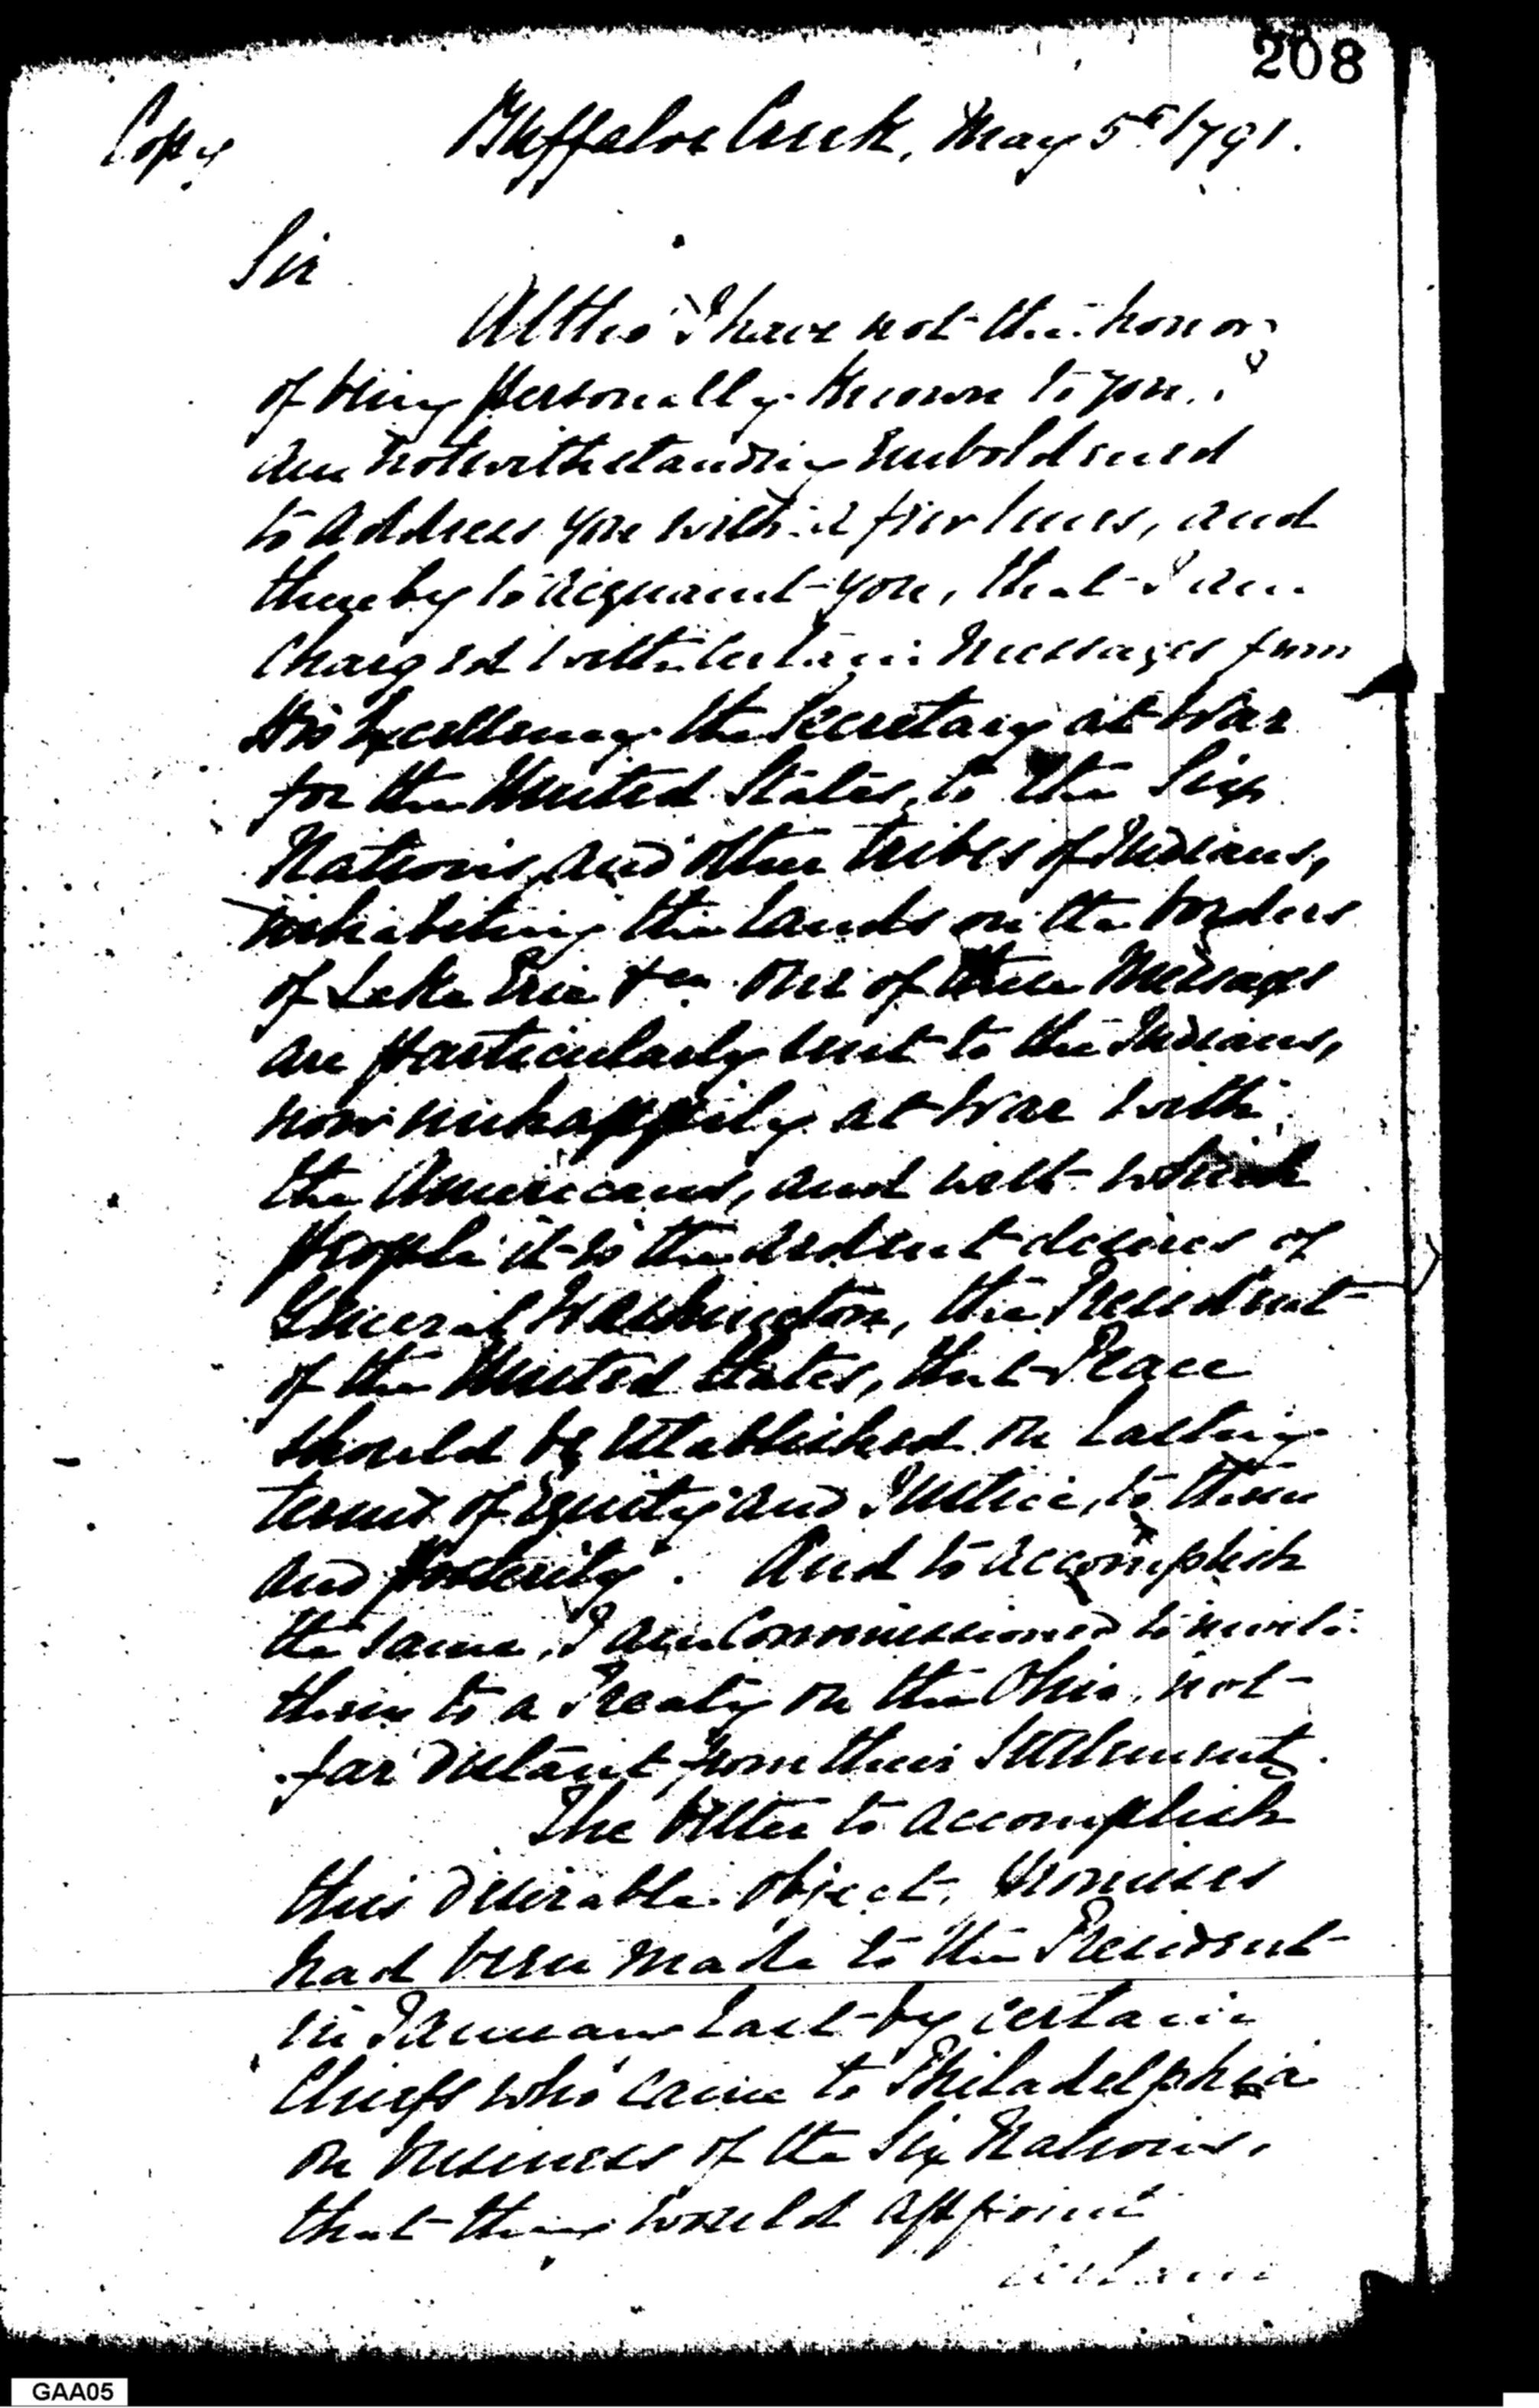 208
Copy
Buffaloe Creek, May 5th 1791.
Sir
Altho' I have not the honor
of being personally known to you, I
am notwithstanding emboldened
to address you with a few lines, and
thereby to acquaint you, that I am
charged with certain Messages from
His Excellency the Secretary at War
for the United States, to the Six
Nations, and other tribes of Indians,
inhabiting the Lands on the borders
of Lake Erie &ca One of these Messages
are particularly sent to the Indians,
now unhappily at War with
the Americans, and with which
people it is the ardent desires of
General Washington, the President
of the United States, that Peace
should be established on lasting
terms of Equity and Justice, to them
and posterity. And to accomplish
the same, I am Commissioned to invite
them to a Treaty on the Ohio, not
far distant from their Settlement.
The better to accomplish
this desirable object, promises
had been made to the President
in January last by certain
Chiefs who came to Philadelphia
on business of the Six Nations,
that they would appoint
certain
GAA05